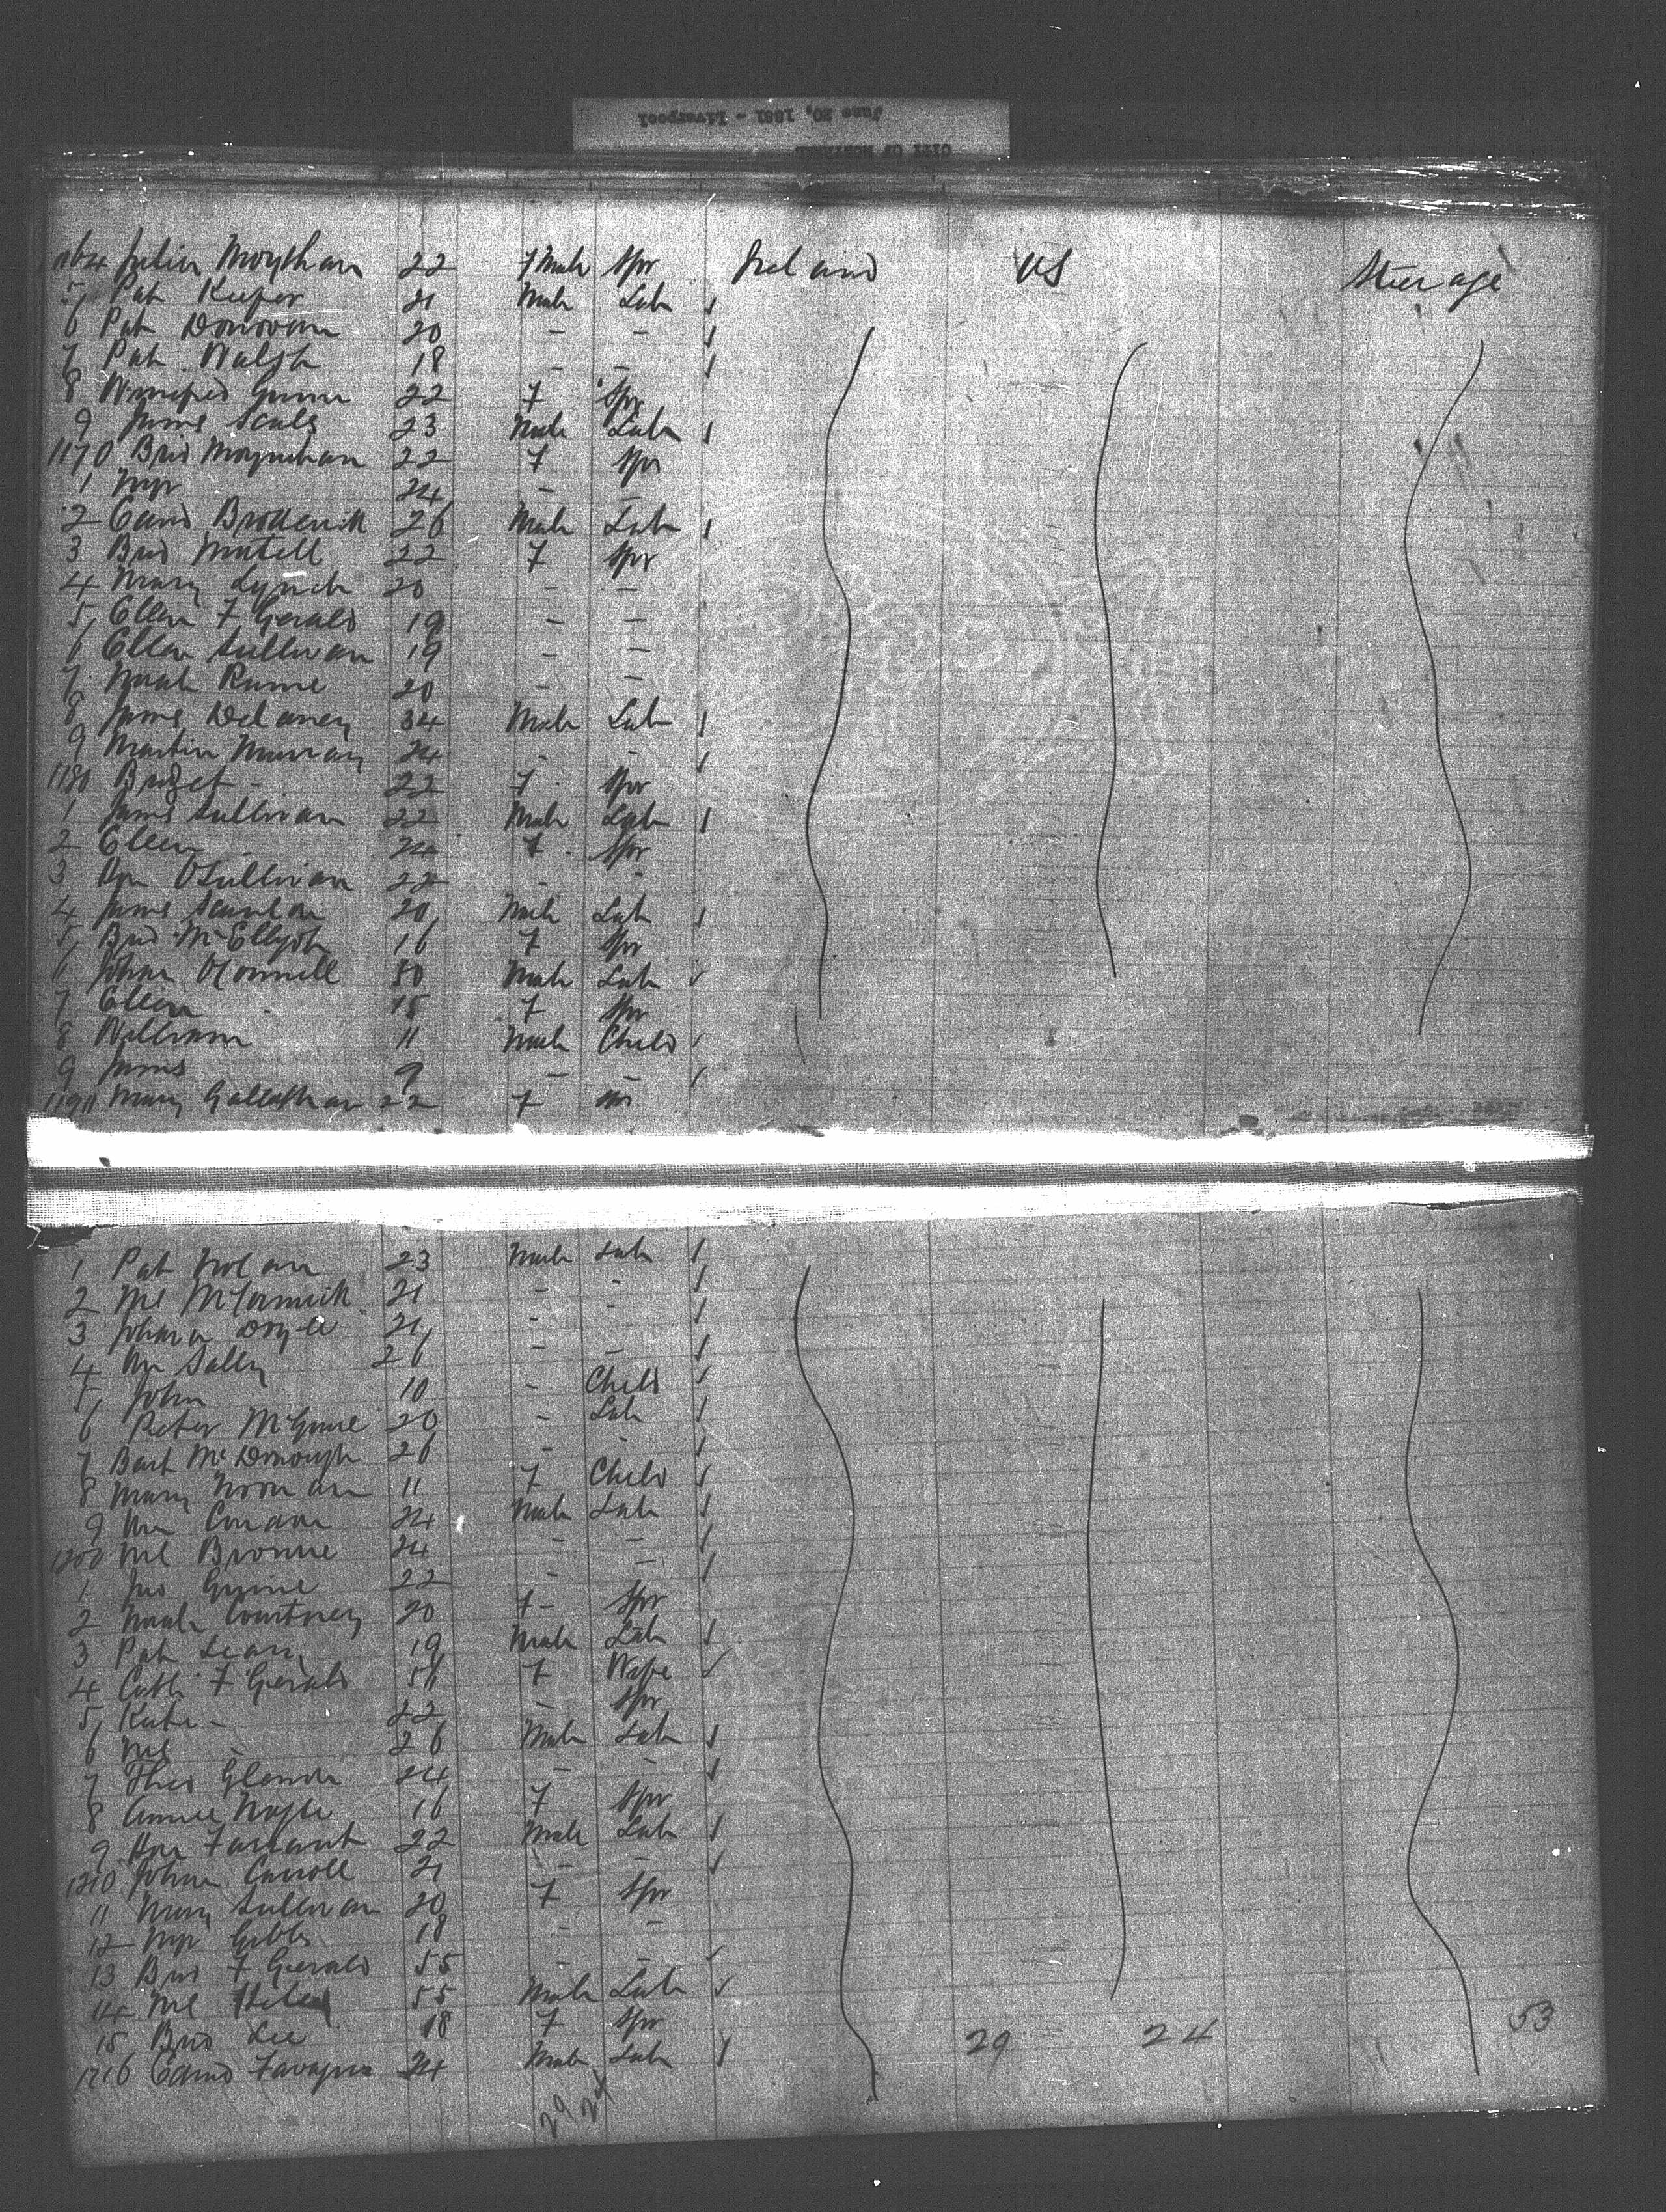 June 20, 1881 - Liverpool
CITY OF MONTREAL
1164 Julia Moynhan 22 Female Spr Ireland US Steerage
5 Pat Keefer 21 Male Lab
6 Pat Donovan 20 - -
7 Pat Walsh 18 - -
8 Winifred 22 F Spr
9 James Scals 23 Male Lab
1170 Brid Moynihan 22 F Spr
1 Mgr 24 - -
2 Edmd Broderick 26 Male Lab
3 Brid 22 F Spr
4 Mary Lynch 20 - -
5 Ellen F Gerald 19 - -
6 Ellen Sullivan 19 - -
7 Norah 20 - -
8 James Delaney 34 Male Lab
9 Martin Murray 24 - -
1180 Bridget - 22 F Spr
1 James Sullivan 22 Male Lab
2 Ellen 24 F Spr
3 OSullivan 22 - -
4 James Scanlon 20 Male Lab
5 Brid McEllyott 16 F Spr
6 John OConnell 50 Male Lab
7 Ellen 15 F Spr
8 William 11 Male Child
9 James 9 - -
1190 Mary 22 F
1 Pat Nolan 23 Male Lab
2 Ml McCormick 21 - -
3 Doyle 21 - -
4 Wm Sally 26 - -
5 John 10 - Child
6 Peter McGuire 20 - Lab
7 Bart McDonough 26 - -
8 Mary Noonan 11 F Child
9 Wm 24 Male Lab
1200 Ml Browne 24 - -
1 Jno 22 - -
2 Norah Courtney 20 F - Spr
3 Pat 19 Male Lab
4 Cath F Gerald 50 F Wife
5 Kate - 22 - Spr
6 Ml - 26 Male Lab
7 Thos 24 - -
8 Annie 16 F Spr
9 22 Male Lab
1210 John Carroll 21 - -
11 Mary Sullivan 20 F Spr
12 Mgr Gibbs 18 - -
13 Brid F Gerald 55 - -
14 Ml 55 Male Lab
15 Brid Lee 18 F Spr
1216 Edmd 24 Male Lab
29 24 53
29 24